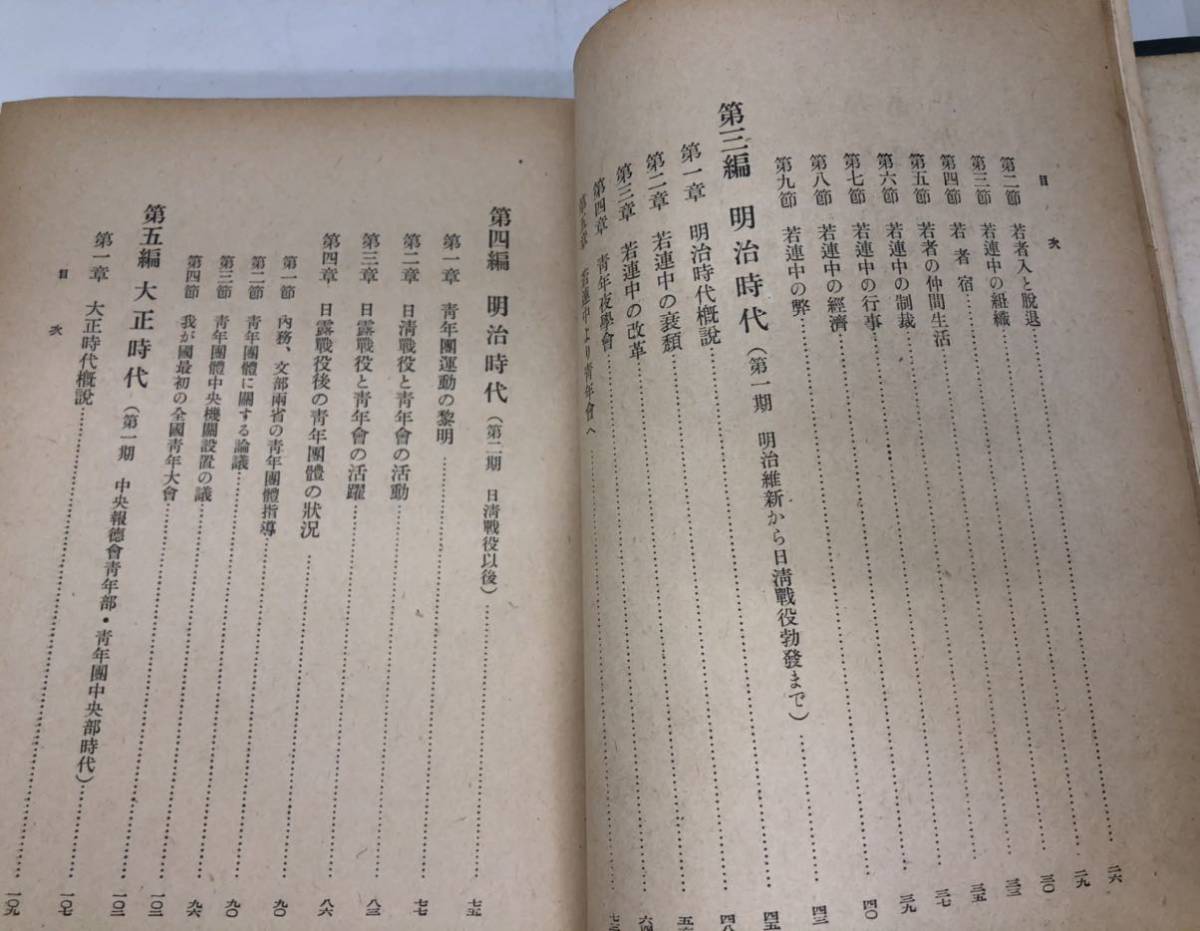 目次
第二節 若者入と脫退……二六
第三節 若連中の組織……二九
第四節 若者宿……三〇
第五節 若者の仲間生活……三三
第六節 若連中の制裁……三五
第七節 若連中の行事……三七
第八節 若連中の經濟……三九
第九節 若連中の弊……四〇
第三編 明治時代(第一期 明治維新から日淸戰役勃發まで)……四三
第一章 明治時代槪說……四五
第二章 若連中の衰頽……四八
第三章 若連中の改革……
第四章 靑年夜學會……
第五章 若連中より靑年會へ……
第四編 明治時代(第二期 日淸戰役以後)……七五
第一章 靑年團運動の黎明……七七
第二章 日淸戰役と靑年會の活動……八三
第三章 日露戰役と靑年會の活躍……八六
第四章 日露戰役後の靑年團體の狀況……九〇
第一節 內務、文部兩省の靑年團體指導……九〇
第二節 靑年團體に關する論議……九六
第三節 靑年團體中央機關設置の議……一〇三
第四節 我が國最初の全國靑年大會……一〇三
第五編 大正時代(第一期 中央報德會靑年部・靑年團中央部時代)……一〇七
第一章 大正時代槪說……一〇九
目次